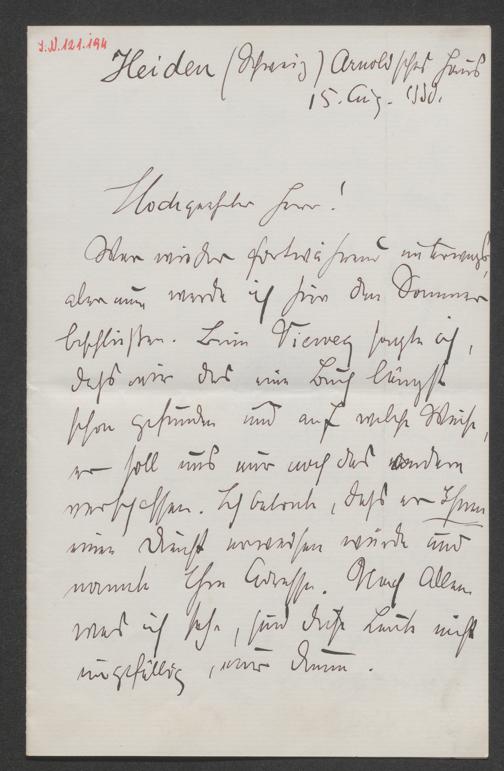 I.N. 121.194
Heiden (Schweiz) Arnold'sches Haus
15. Aug. 1880.
Hochgeehrter Herr!
War wieder fortwährend unterwegs,
aber nun werde ich hier den Sommer
beschließen. Beim Vieweg sagte ich,
daß wir das eine Buch längst
schon gefunden und auf welche Weise,
er soll uns nur noch das andere
verschaffen. Ich betonte, daß er Ihnen
einen Dienst erweisen würde und
nannte Ihre Adresse. Nach Allem
was ich sehe, sind diese Leute nicht
ungefällig, nur dumm.